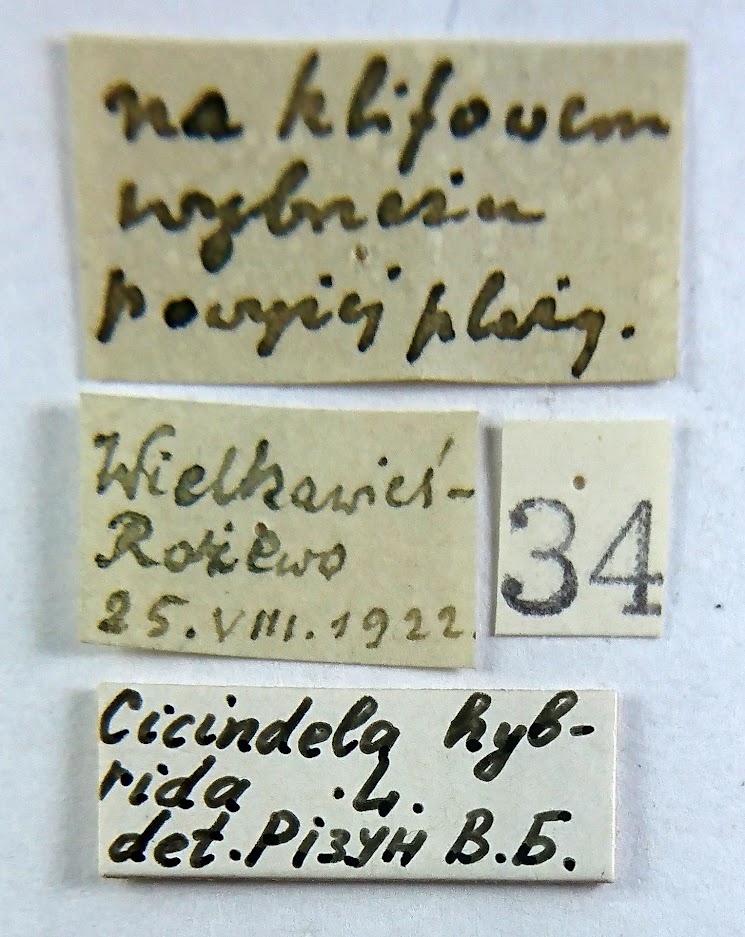 na klifowem
wybrzeżu
powyżej plaży.
Wielkawieś-
Rozewo
25.VIII.1922.
34
Cicindela hyb-
rida .L.
det. Різун В.Б.